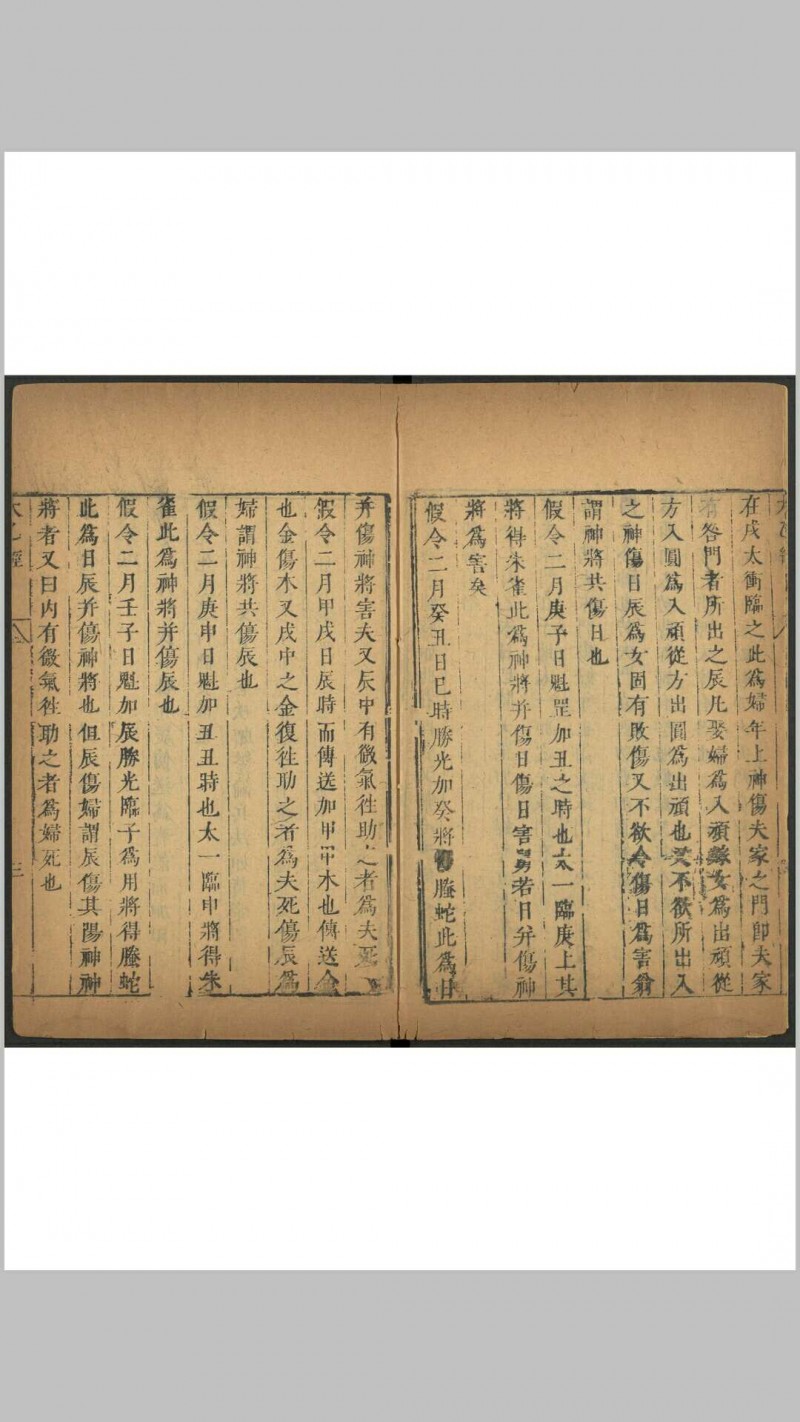 在戌太衝臨之此為婦年上神傷夫家之門即夫家
有咎門者所出之辰凡娶婦為入頑嫁女為出頑從
方入圓為入頑從方出圓為出頑也又不欲所出入
之神傷日辰為女固有敗傷又不欲令傷日為害翁
謂神將共傷日也
假令二月庚子日魁罡加丑之時也太一臨庚上其
將得朱雀此為神將并傷日傷日害男若日弁傷神
將為害矣
假令二月癸丑日巳時勝光加癸將螣蛇此為日
并傷神將害夫又辰中有微氣徃助之者為夫死
假令二月甲戌日辰時而傳送加甲甲木也傳送金
也金傷木又戌中之金復徃助之者為夫死傷辰為
婦謂神將共傷辰也
假令二月庚申日魁加丑丑時也太一臨申將得朱
雀此為神將并傷辰也
假令二月壬子日魁加辰勝光臨子為用將得螣蛇
此為日辰并傷神將也但辰傷婦謂辰傷其陽神神
將者又曰内有微氣徃助之者為婦死也
太乙經
三